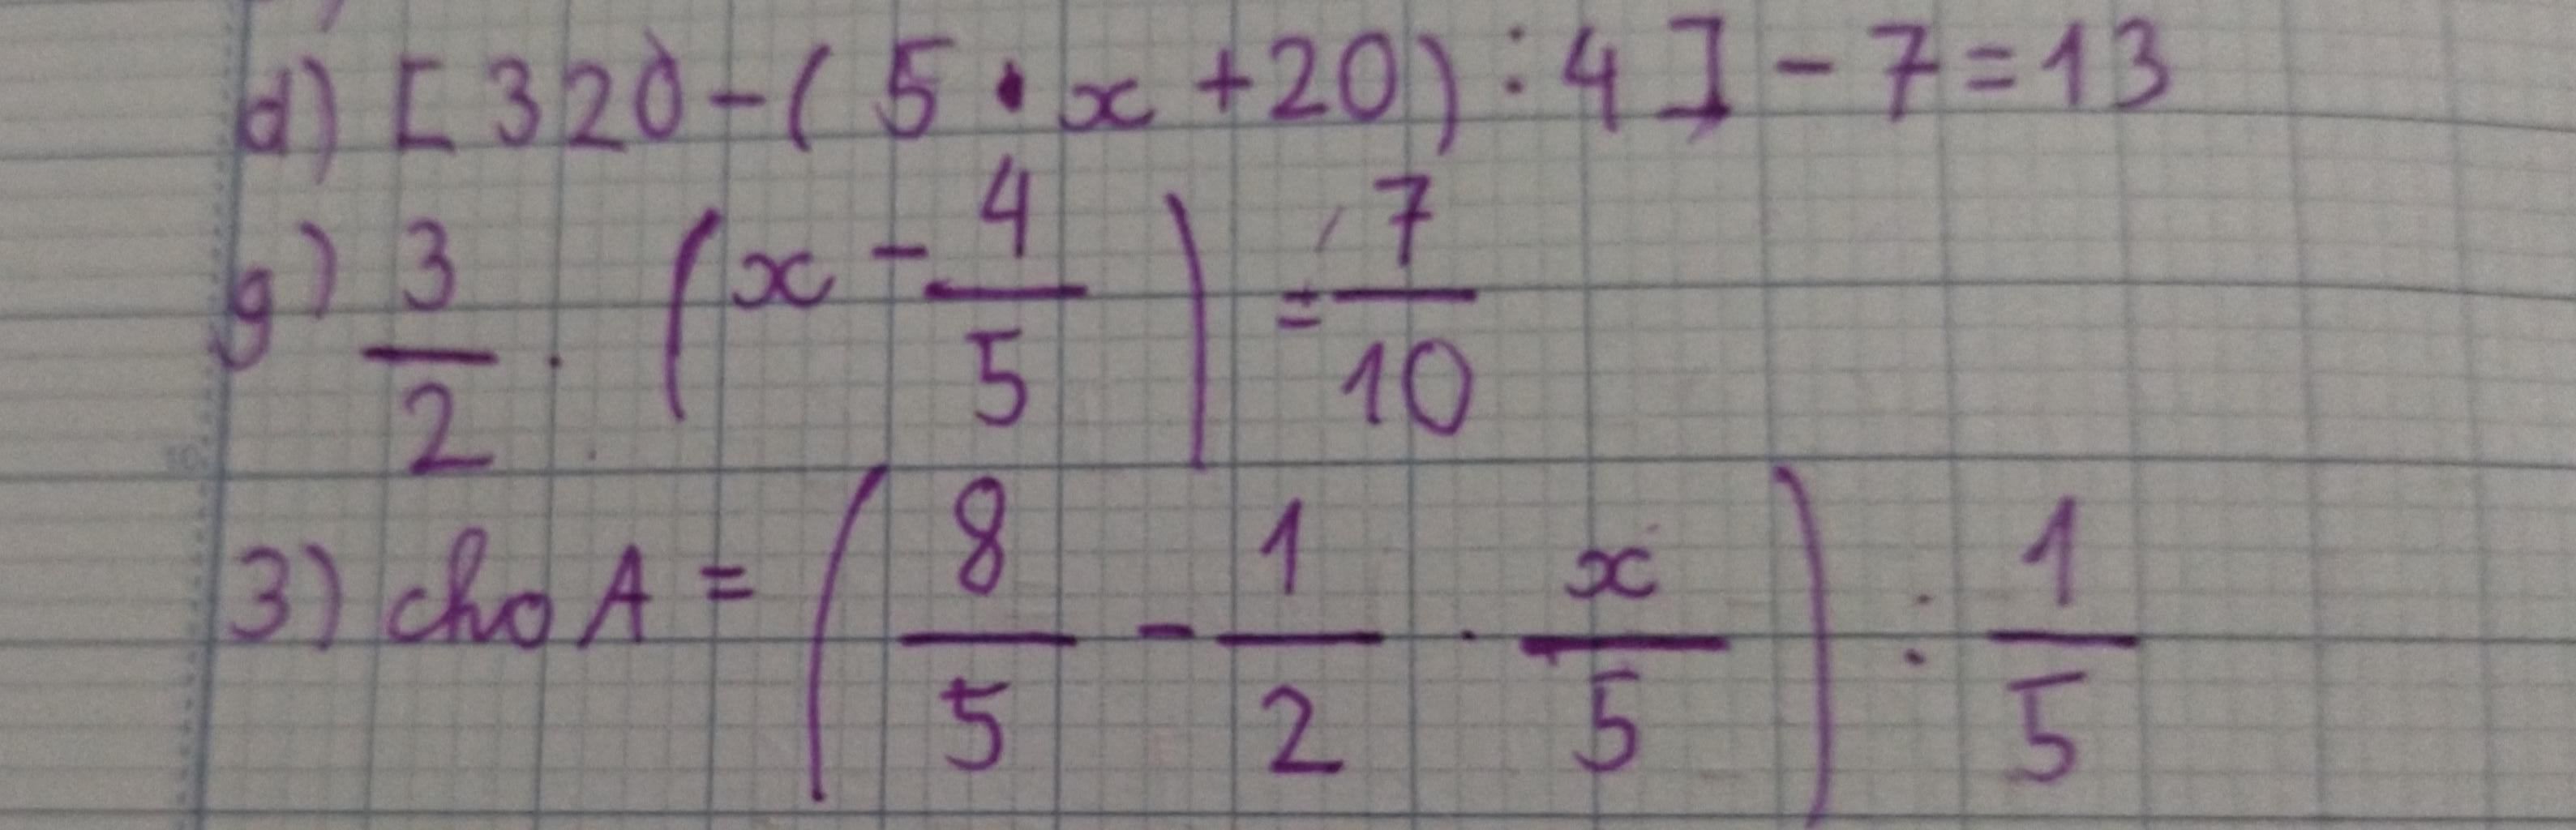 d) [320-(5.x+20):4]-7=13
g) 3/2 . (x - 4/5) = 7/10
3) cho A = (8/5 - 1/2 . x/5) : 1/5